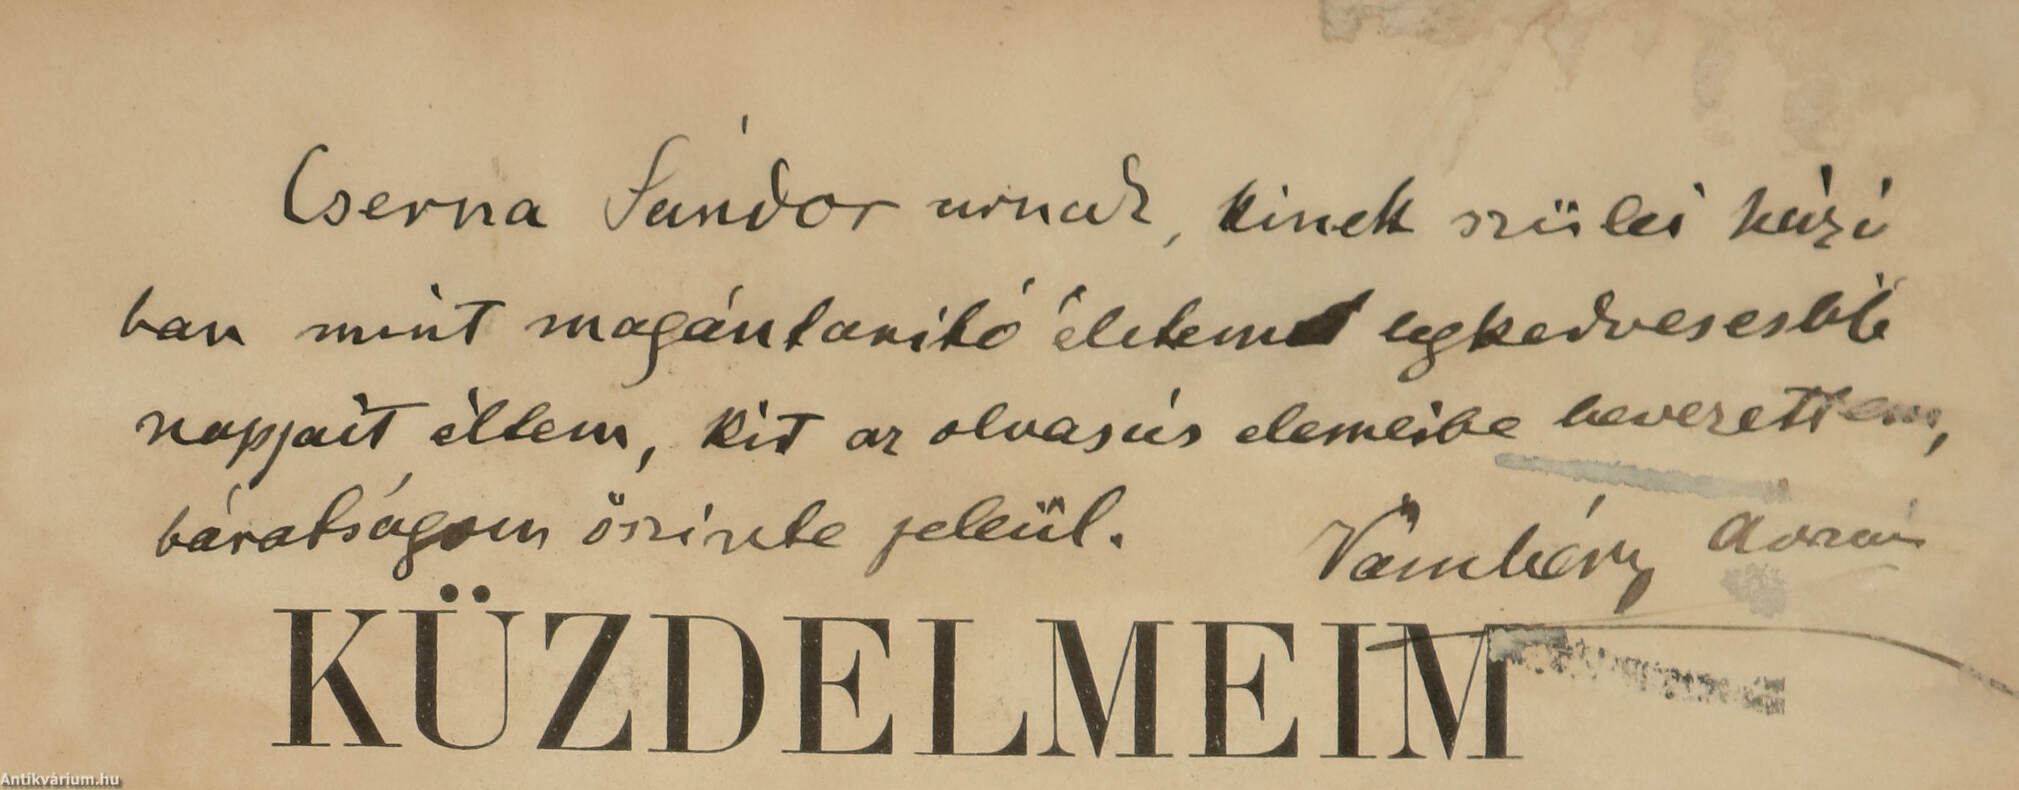 Cserna Sándor urnak, kinek szülei házá
ban mint magántanitó életem legkedvesebb
napjait éltem, kit az olvasás elemeibe bevezettem,
barátságom őszinte jeleül.
Vámbéry Ármin
KÜZDELMEIM
Antikvárium.hu